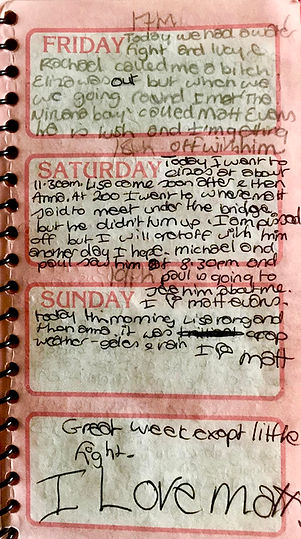 17th
FRIDAY Today we had a water
fight and lucy &
Rachael called me a bitch
Eliza was out but when we
we going round I met the
Nirvana boy called Matt Evans
he is lush and I m going
18th off with him
SATURDAY Today I went to
elizas at about
11.30am. Lisa come soon after & then
Anna. At 200 I went to where matt
said to meet under the bridge.
but he didn't turn up. I am pissed
off but I will get off with him
another day I hope- michael and
paul saw him at 8.30pm and
19th paul is going to
see him about me.
SUNDAY I matt evans.
today this morning Lisa rang and
then anna. it was crap
weather-gales & rain I
matt
Great week exept little
fight-
I Love matt